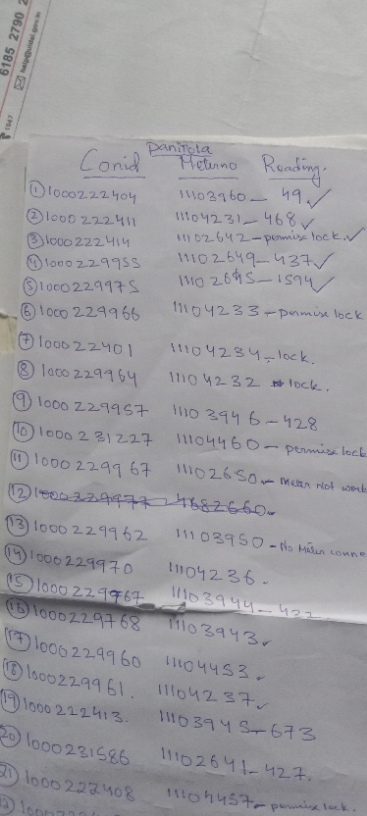 6185 2790 2
help@uidai.gov.in
1947
Panitola
Conid Meterno Reading.
① 1000222404 11103960 - 49 ✓
② 1000222411 11104231 - 468 ✓
③ 1000222414 11102642 - permise lock. ✓
④ 1000229955 11102649 - 437 ✓
⑤ 1000229975 11102645 - 1594 ✓
⑥ 1000229966 11104233 - permise lock
⑦ 100022401 11104234 - lock.
⑧ 1000229964 11104232 lock.
⑨ 1000229957 11103946 - 428
⑩ 1000231227 11104460 - permise lock
⑪ 1000229967 11102650 - Meter Not work
⑫ 1000329977 - 4682660 -
⑬ 1000229962 11103950 - No Meter conne
⑭ 1000229970 11104236 -
⑮ 1000229767 11103944 - 422
⑯ 1000229768 11103943 ✓
⑰ 1000229960 11104453 ✓
⑱ 1000229961. 11104237 ✓
⑲ 1000222413. 11103945 - 673
⑳ 1000231586 11102641 - 427.
㉑ 1000222408 11104457 - permise lock.